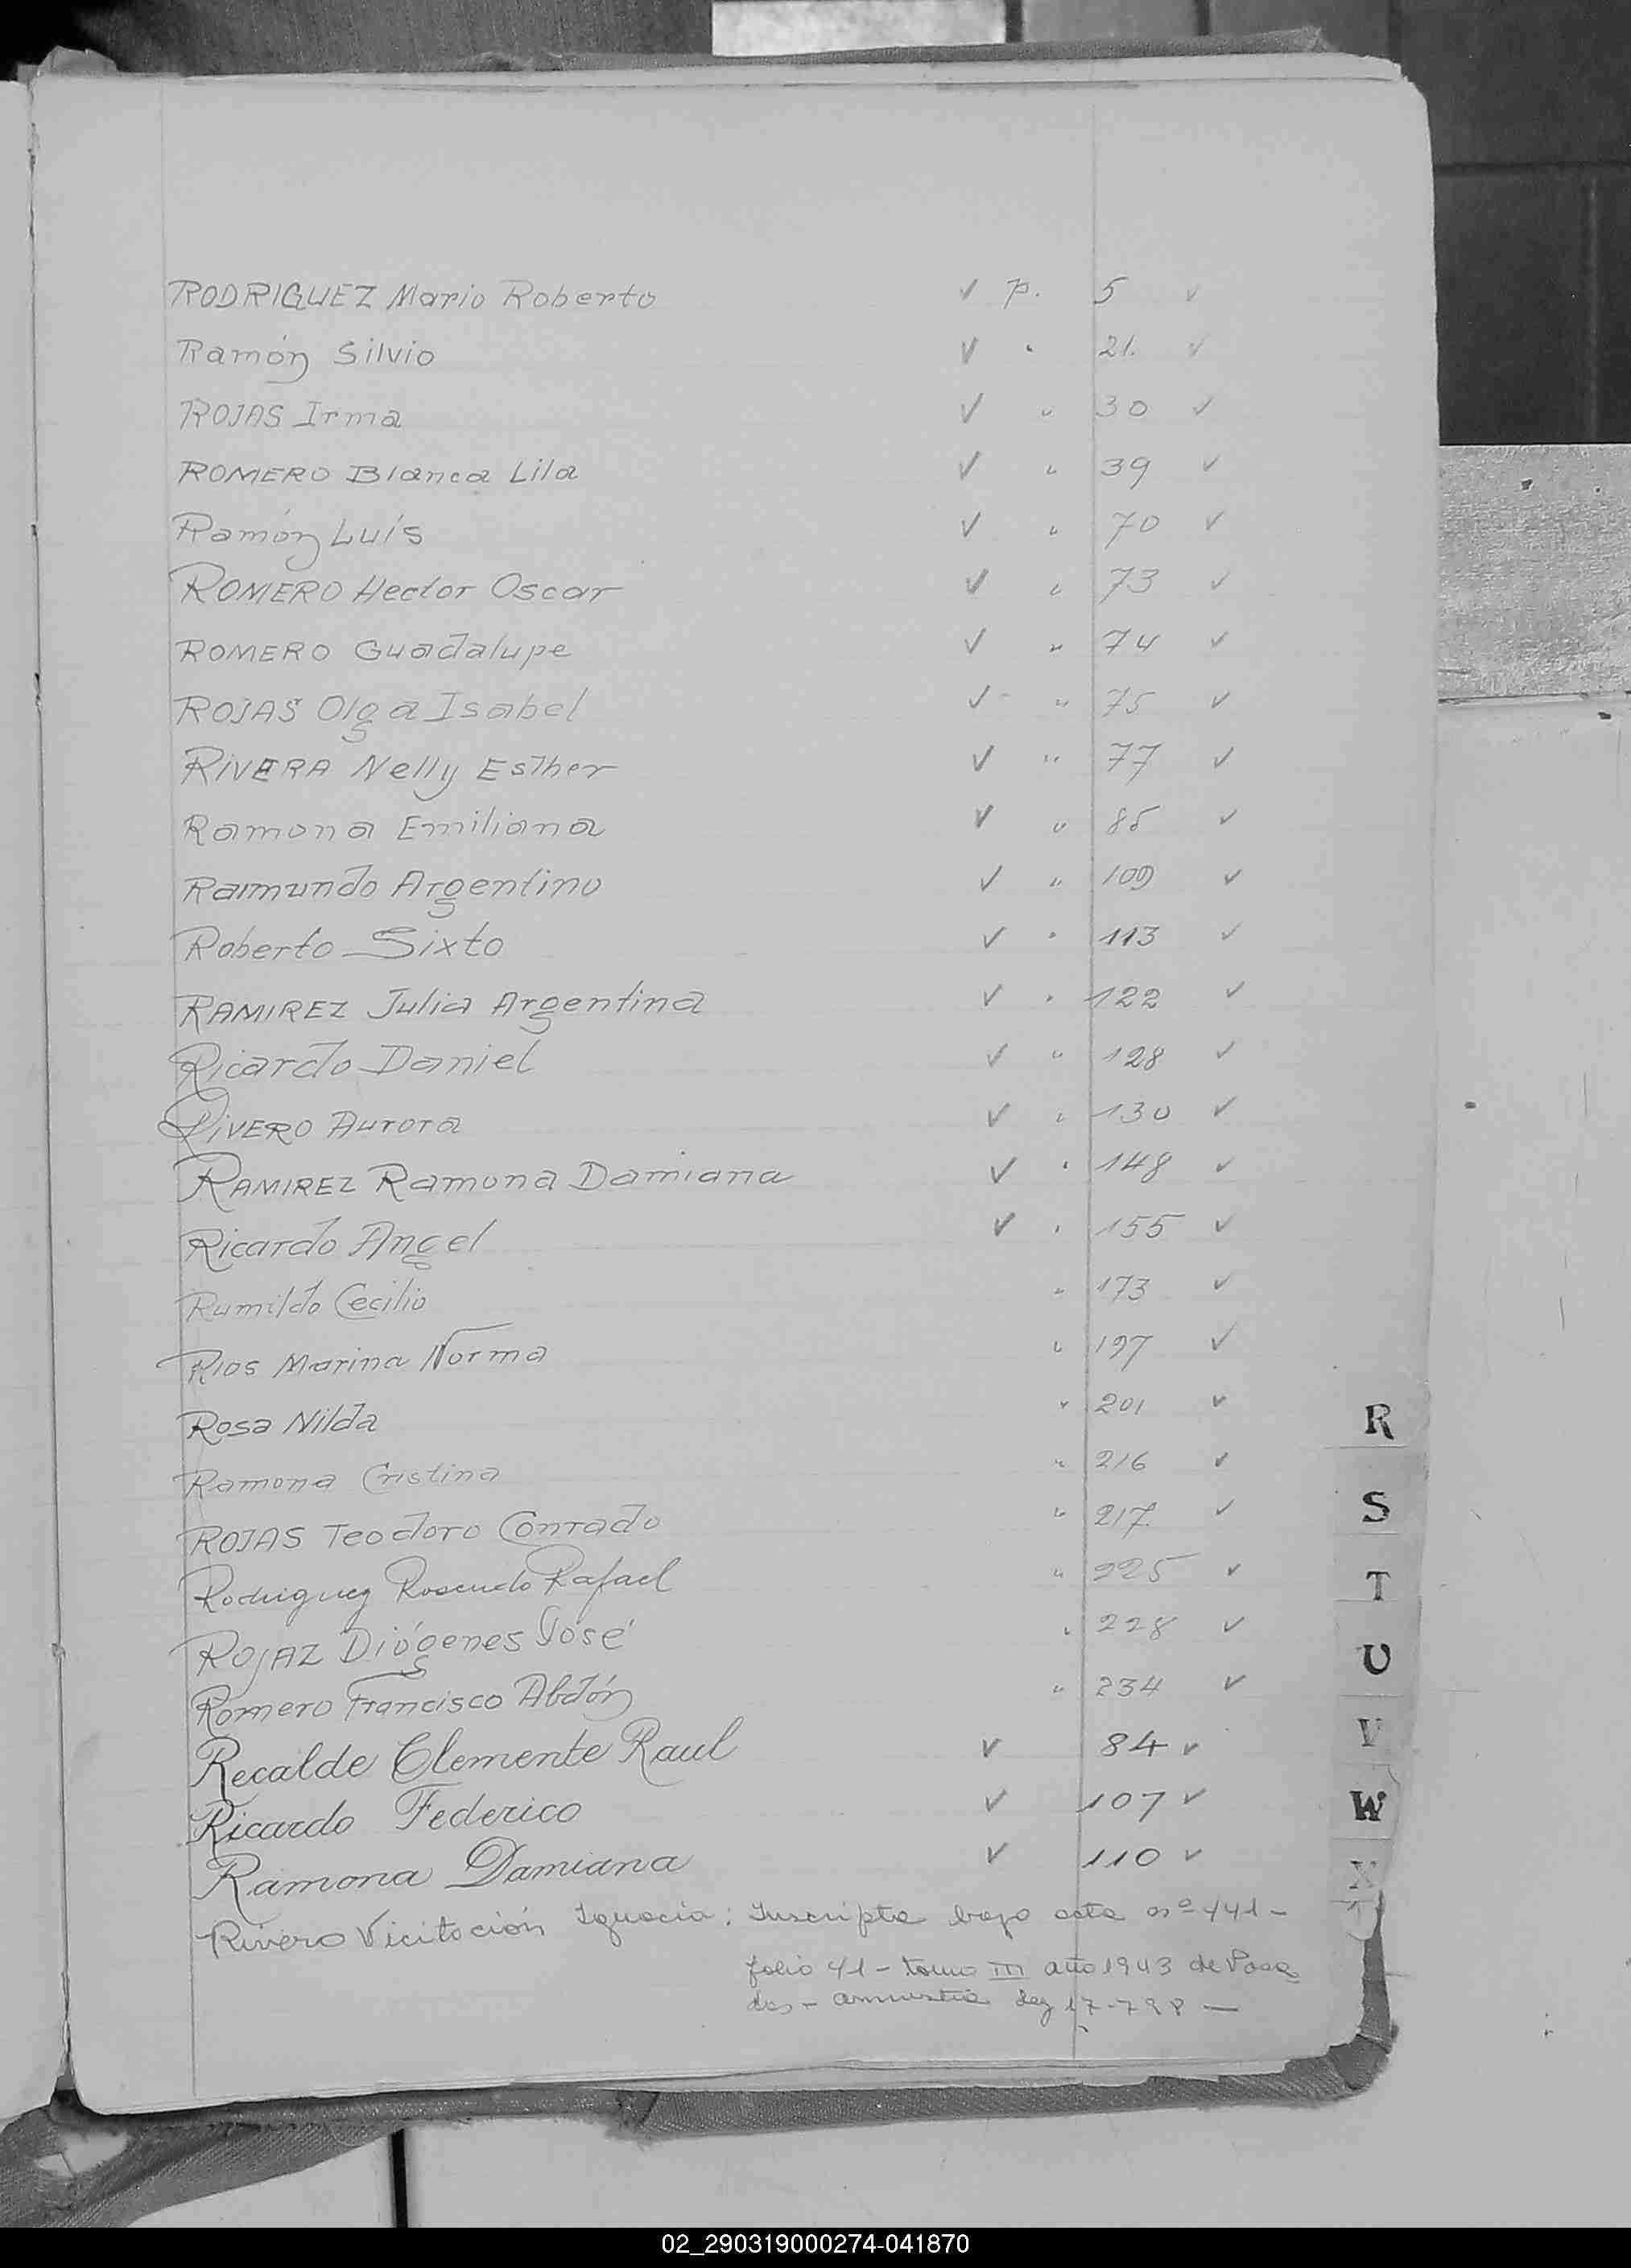 RODRIGUEZ Mario Roberto ✓ p. 5 ✓
Ramón Silvio ✓ " 21. ✓
ROJAS Irma ✓ " 30 ✓
ROMERO Blanca Lila ✓ " 39 ✓
Ramón Luís ✓ " 70 ✓
ROMERO Hector Oscar ✓ " 73 ✓
ROMERO Guadalupe ✓ " 74 ✓
ROJAS Olga Isabel ✓ " 75 ✓
RIVERA Nelly Esther ✓ " 77 ✓
Ramona Emiliana ✓ " 85 ✓
Raimundo Argentino ✓ " 109 ✓
Roberto Sixto ✓ " 113 ✓
RAMIREZ Julia Argentina ✓ " 122 ✓
Ricardo Daniel ✓ " 128 ✓
RIVERO Aurora ✓ " 130 ✓
RAMIREZ Ramona Damiana ✓ " 148 ✓
Ricardo Angel ✓ " 155 ✓
Rumildo Cecilio " 173 ✓
RIOS Marina Norma " 197 ✓
Rosa Nilda " 201 ✓
Ramona Cristina " 216 ✓
ROJAS Teodoro Conrado " 217. ✓
Rodriguez Rosendo Rafael " 225 ✓
ROJAZ Diógenes José " 228 ✓
Romero Francisco Abdón " 234 ✓
Recalde Clemente Raul ✓ 84 ✓
Ricardo Federico ✓ 107 ✓
Ramona Damiana ✓ 110 ✓
Rivero Vicitación Ignacia: Inscripta bajo acta nº 441-
folio 41 - tomo III año 1943 de Posa
das - amnistia ley 17-798 —
R
S
T
U
V
W
X
02_290319000274-041870